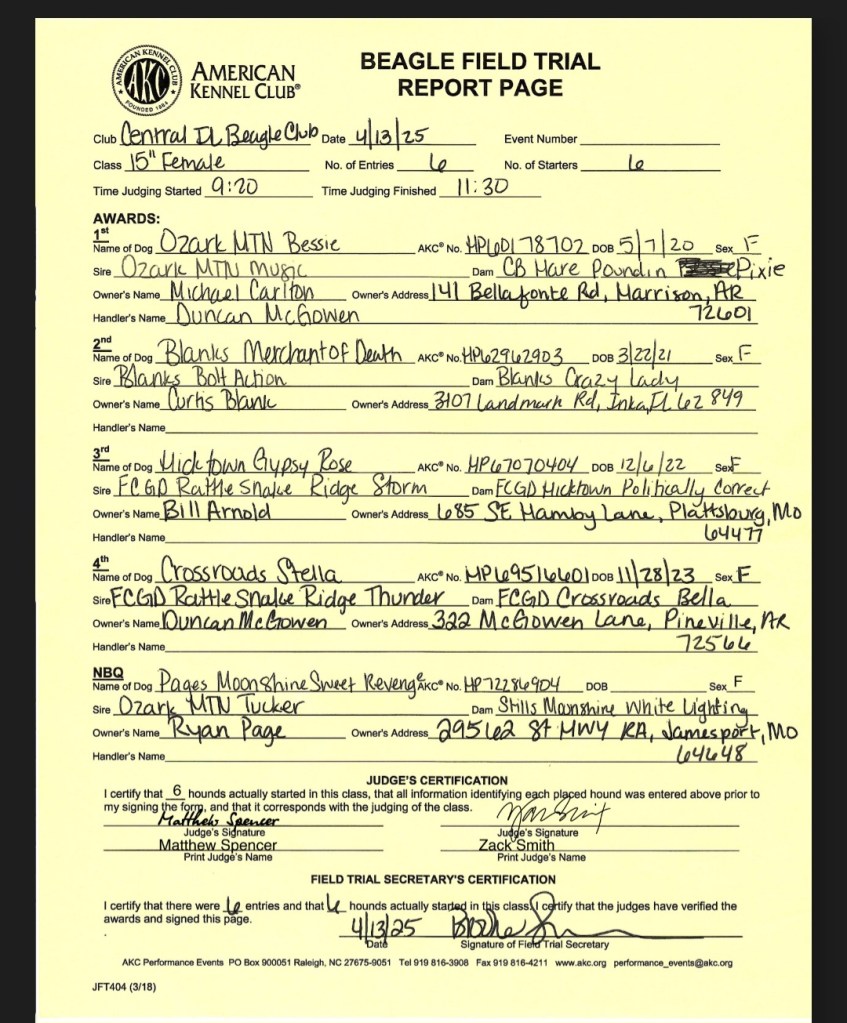 AMERICAN KENNEL CLUB
AKC
FOUNDED 1884
AMERICAN
KENNEL CLUB®
BEAGLE FIELD TRIAL
REPORT PAGE
Club Central IL Beagle Club Date 4/13/25 Event Number
Class 15" Female No. of Entries 6 No. of Starters 6
Time Judging Started 9:20 Time Judging Finished 11:30
AWARDS:
1st
Name of Dog Ozark MTN Bessie AKC® No. HP60178702 DOB 5/7/20 Sex F
Sire Ozark MTN Music Dam CB Hare Poundin Pixie
Owner's Name Michael Carlton Owner's Address 141 Bellafonte Rd, Harrison, AR
Handler's Name Duncan McGowen 72601
2nd
Name of Dog Blanks Merchant of Death AKC® No. HP62962903 DOB 3/22/21 Sex F
Sire Blanks Bolt Action Dam Blanks Crazy Lady
Owner's Name Curtis Blank Owner's Address 3107 Landmark Rd, Inka, IL 62849
Handler's Name
3rd
Name of Dog Hicktown Gypsy Rose AKC® No. HP67070404 DOB 12/6/22 Sex F
Sire FCGD Rattle Snake Ridge Storm Dam FCGD Hicktown Politically Correct
Owner's Name Bill Arnold Owner's Address 685 SE Hamby Lane, Plattsburg, MO
Handler's Name 64477
4th
Name of Dog Crossroads Stella AKC® No. HP69516601 DOB 11/28/23 Sex F
Sire FCGD Rattle Snake Ridge Thunder Dam FCGD Crossroads Bella
Owner's Name Duncan McGowen Owner's Address 322 McGowen Lane, Pineville, AR
Handler's Name 72566
NBQ
Name of Dog Pages Moonshine Sweet Revenge AKC® No. HP72286904 DOB Sex F
Sire Ozark MTN Tucker Dam Stills Moonshine White Lighting
Owner's Name Ryan Page Owner's Address 29562 St HWY RA, Jamesport, MO
Handler's Name 64648
JUDGE'S CERTIFICATION
I certify that 6 hounds actually started in this class, that all information identifying each placed hound was entered above prior to
my signing the form, and that it corresponds with the judging of the class.
Matthew Spencer
Judge's Signature Judge's Signature
Matthew Spencer Zack Smith
Print Judge's Name Print Judge's Name
FIELD TRIAL SECRETARY'S CERTIFICATION
I certify that there were 6 entries and that 6 hounds actually started in this class. I certify that the judges have verified the
awards and signed this page.
4/13/25
Date Signature of Field Trial Secretary
AKC Performance Events PO Box 900051 Raleigh, NC 27675-9051 Tel 919 816-3908 Fax 919 816-4211 www.akc.org performance_events@akc.org
JFT404 (3/18)